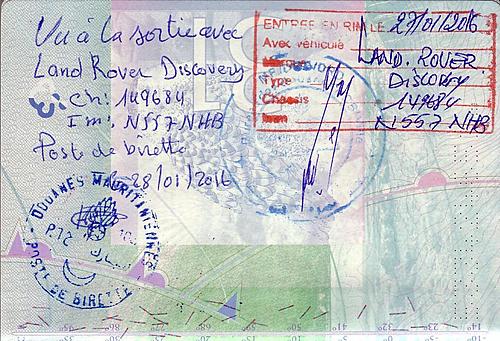 Vu à la sortie avec
Land Rover Discovery
Ch: 149684
Im: N557NHB
Poste de birette
le 28/01/2016
ENTREE EN RIM LE 27/01/2016
Avec véhicule
LAND. ROVER
Type DISCOVRY
Chassis 149684
N557 NHB
DOUANES MAURITANIENNES
P.T.C
POSTE DE BIRETTE